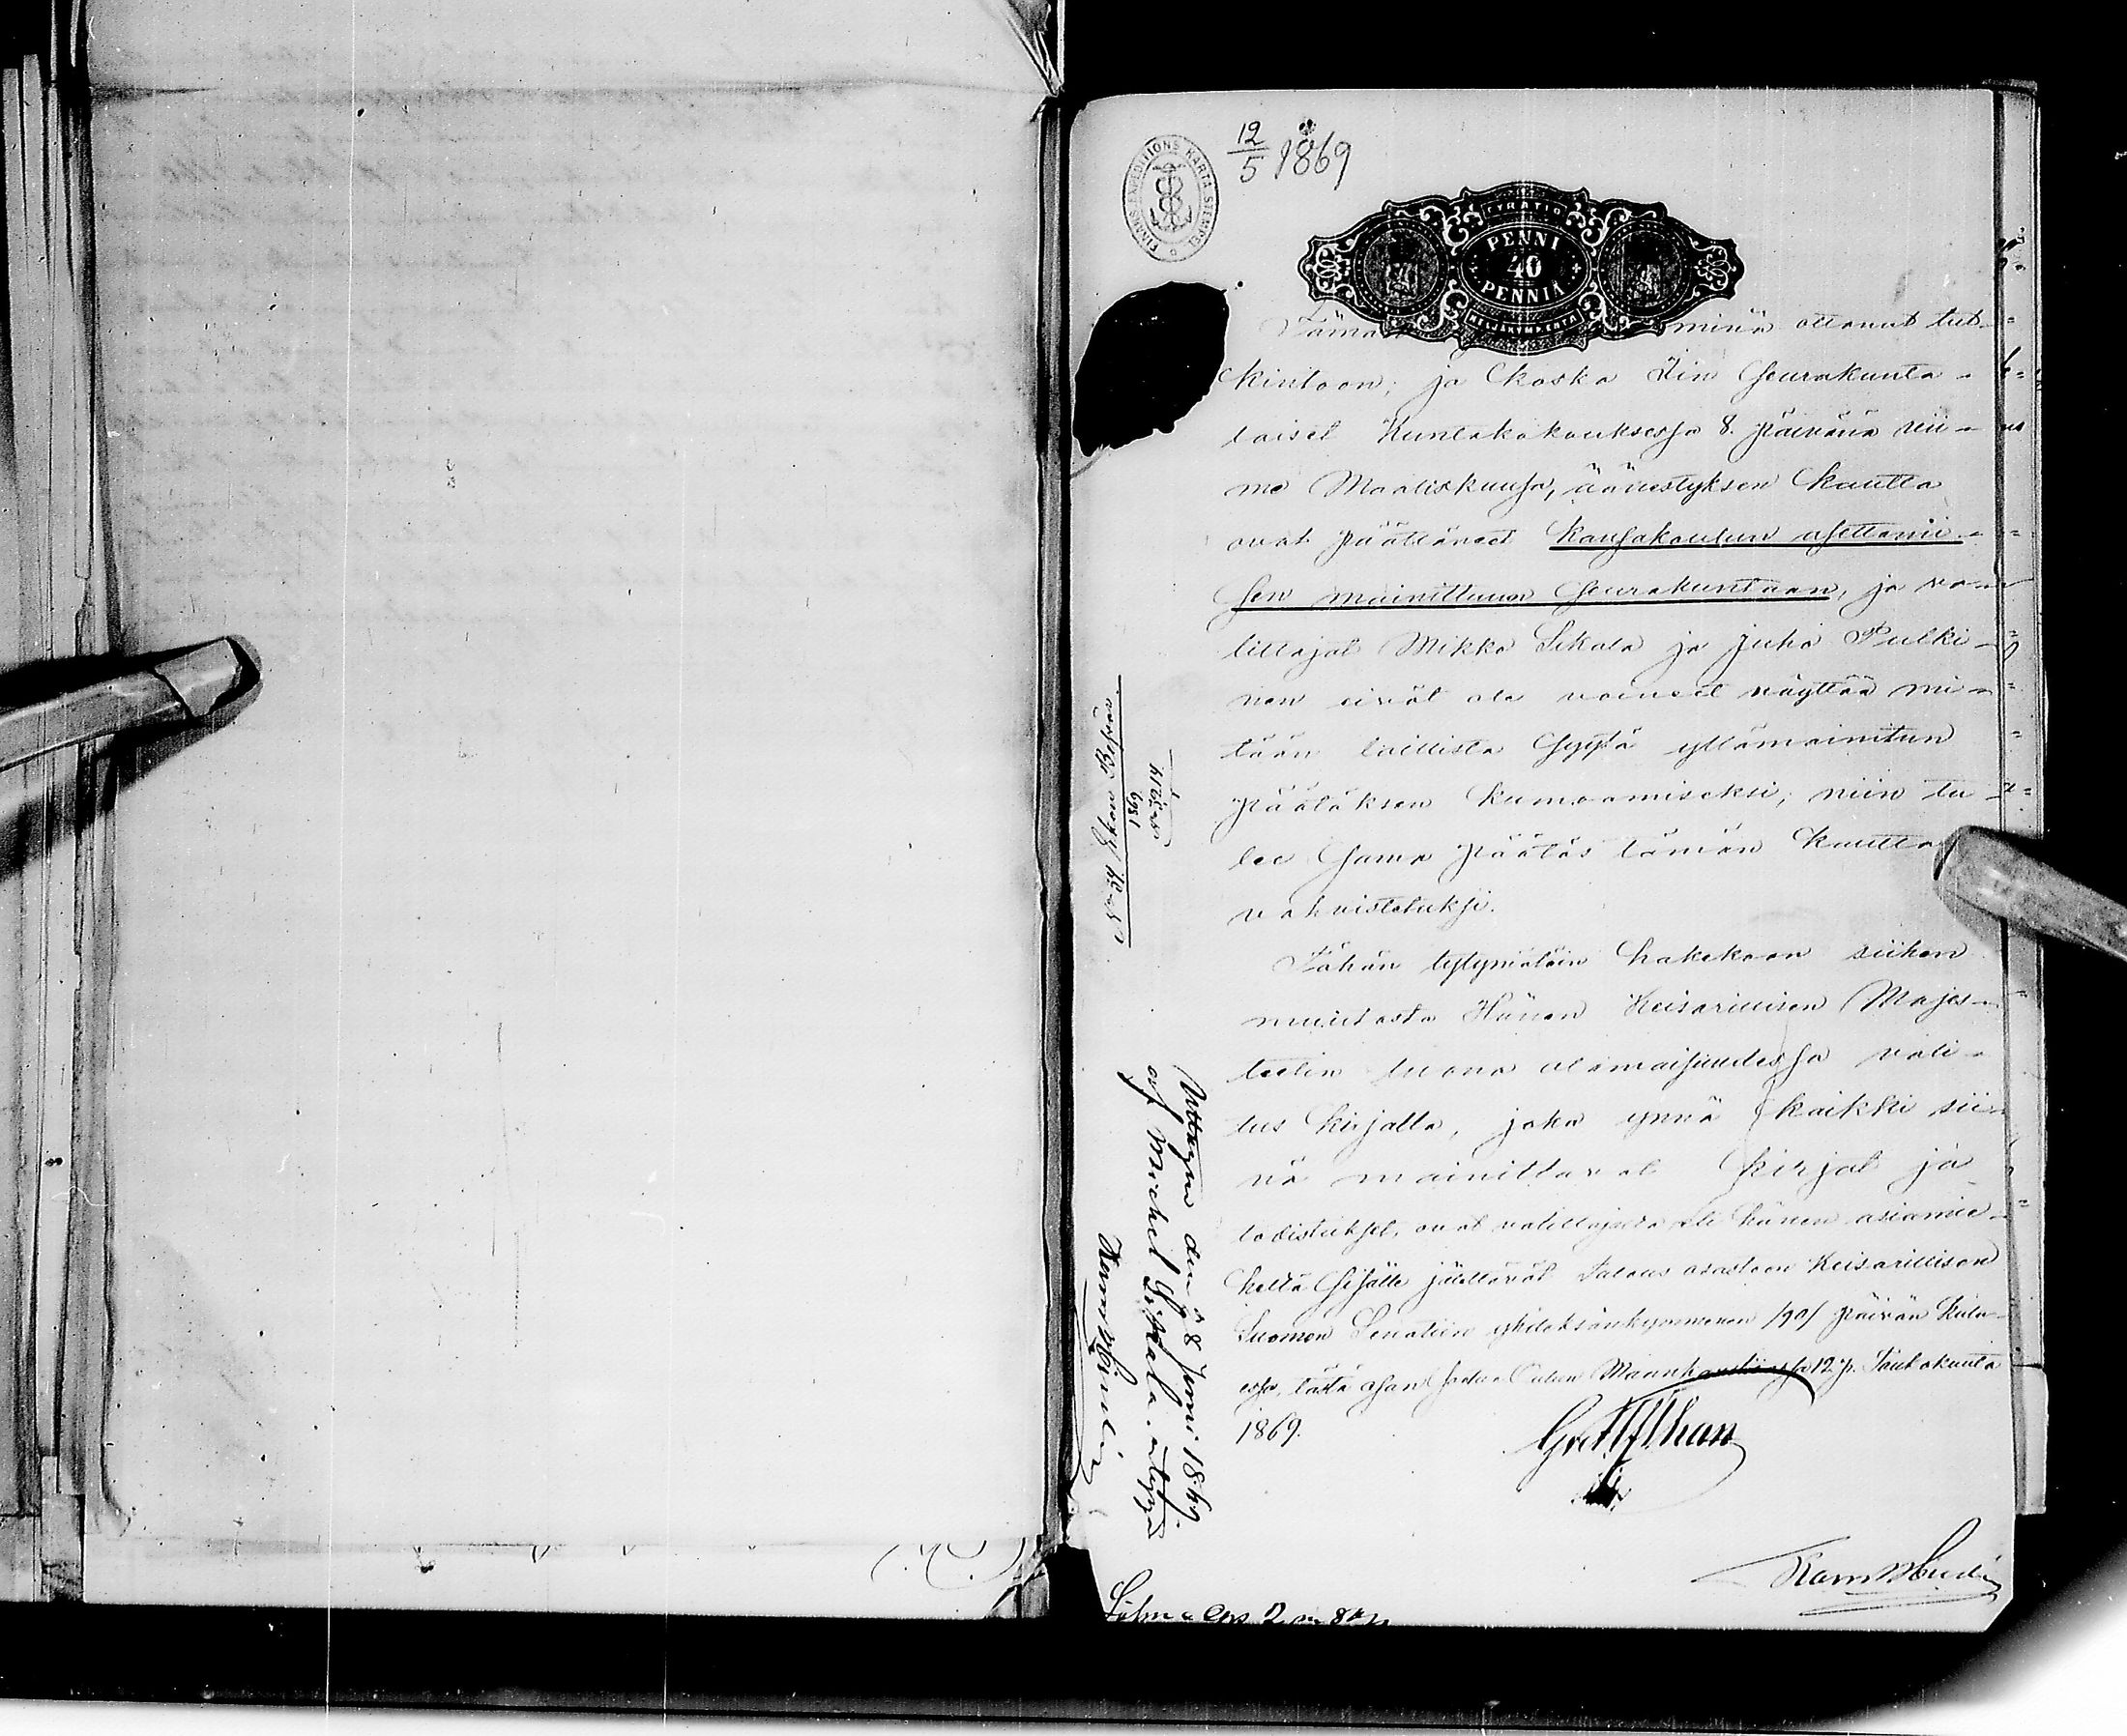 12/5 1869
FINANS EXPEDITIONS KARTA STEMPEL
PENNI
40
PENNIÄ
NELJÄKYMMENTÄ
minä ottanut tut-
kintoon; ja koska Iin Seurakunta-
laiset Kuntakokouksessa 8. päivänä vii-
me Maaliskuussa, äänestyksen kautta
ovat päättäneet kansakoulun asettami-
sen mainittuun Seurakuntaan, ja va-
littajat Mikko Sikala ja Juho Pulki-
nen eivät ole voineet näyttää mi-
tään laillista syytä yllämainitun
päätöksen kumoamiseksi; niin tu-
lee sama päätös tämän kautta
vahvistetuksi.
Tähän tytymätöin hakekoon siihen
muutosta Hänen Keisarillisen Majes-
teetin tuona alamaisuudessa vali-
tus kirjalla, joka ynnä kaikki sii-
nä mainittavat kirjat ja
todistukset, ovat valittajalta eli hänen asiamie-
heltä sisälle jätettävät Talous osastoon Keisarillisen
Suomen Senatiin yhdeksänkymmenen /90/ päivän kulu-
essa, tästä
12 p. Toukokuuta
1869.
Uttagen den 8 Juni 1869
af Michel Sikala, intygar